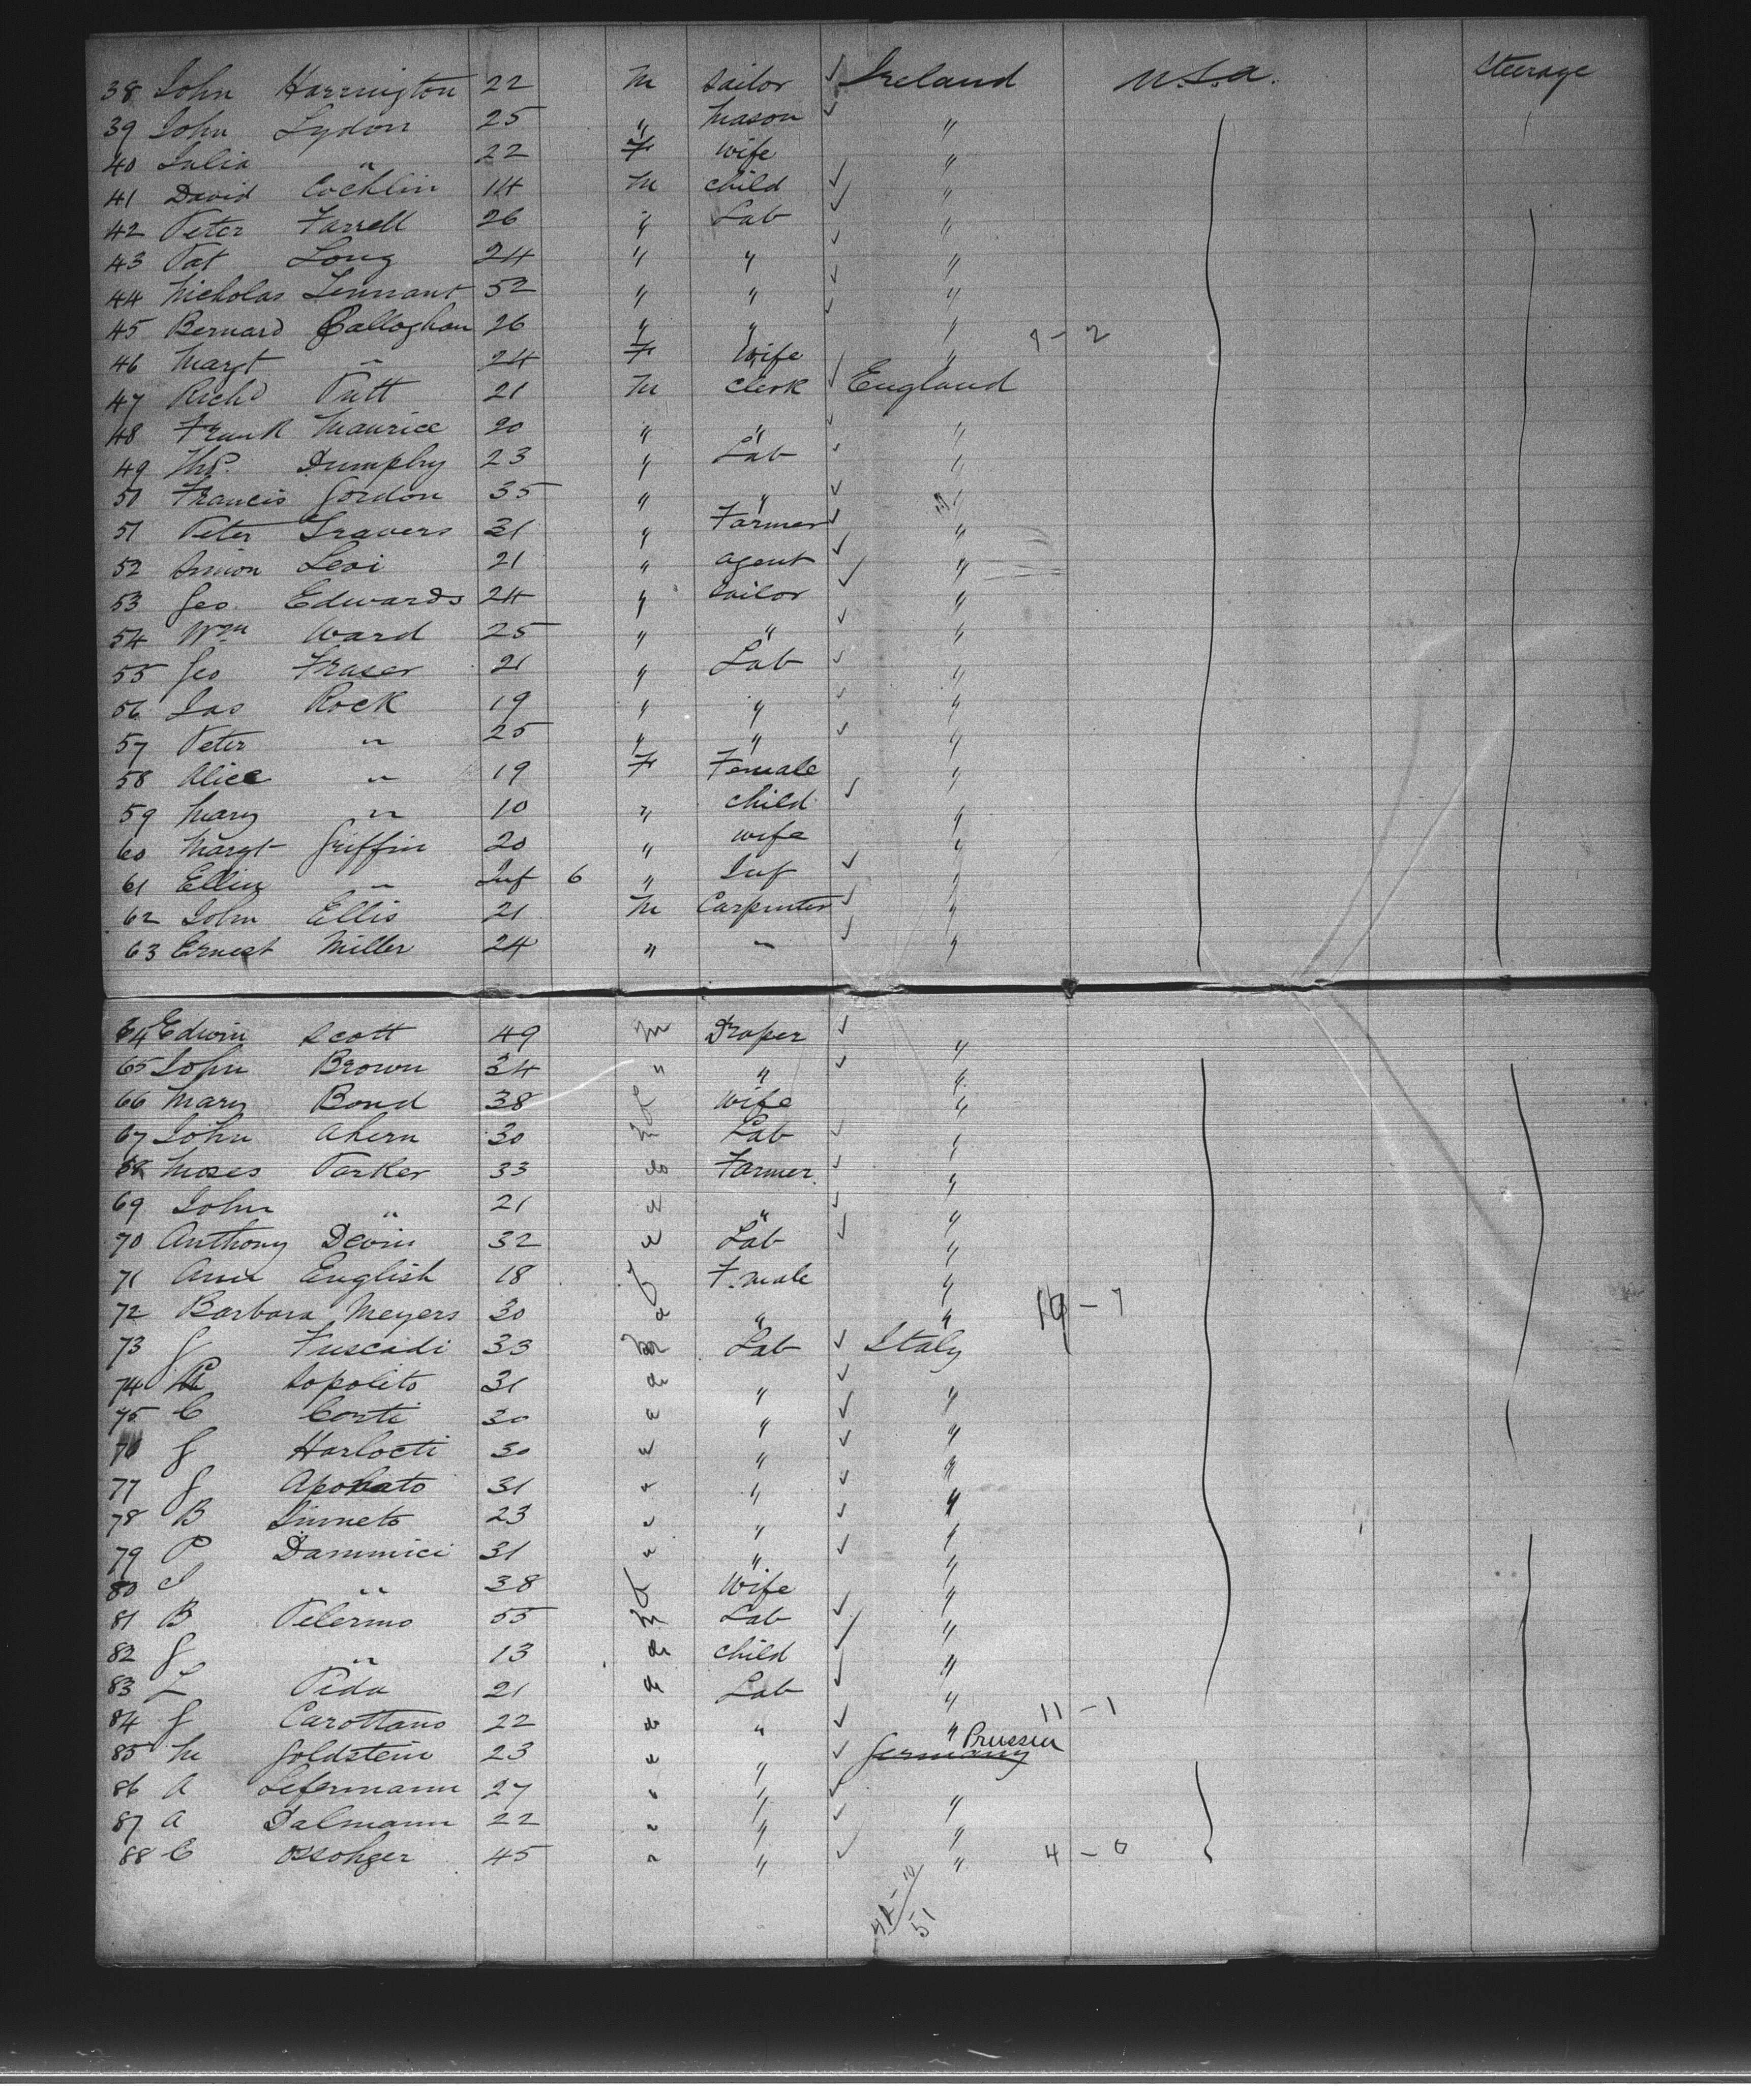 38 John Harrington 22 M Sailor ✓ Ireland U.S.A. Steerage
39 John Lydon 25 " Mason ✓ "
40 Julia " 22 F Wife "
41 David Cochlin 14 M Child ✓ "
42 Peter Farrell 26 " Lab ✓ "
43 Pat Long 24 " " ✓ "
44 Nicholas Tennant 52 " " ✓ "
45 Bernard Callaghan 26 " " ✓ "
46 Margt " 24 F Wife " 9 - 2
47 Richd Putt 21 M Clerk ✓ England
48 Frank Maurice 20 " " ✓ "
49 Ths. Dumphy 23 " Lab ✓ "
50 Francis Gordon 35 " " ✓ "
51 Peter Travers 31 " Farmer ✓ "
52 Simon Levi 21 " Agent ✓ "
53 Geo. Edwards 24 " Sailor ✓ "
54 Wm Ward 25 " " ✓ "
55 Geo Fraser 21 " Lab ✓ "
56 Jas Rock 19 " " ✓ "
57 Peter " 25 " " ✓ "
58 Alice " 19 F Female "
59 Mary " 10 " Child ✓ "
60 Margt Griffin 20 " Wife "
61 Ellen " Inf 6 " Inf ✓ "
62 John Ellis 21 M Carpenter ✓ "
63 Ernest Miller 24 " " ✓ "
64 Edwin Scott 49 M Draper ✓ "
65 John Brown 34 " " ✓ "
66 Mary Bond 38 F Wife "
67 John Ahern 30 M Lab ✓ "
68 Moses Parker 33 do Farmer ✓ "
69 John " 21 " " ✓ "
70 Anthony Devin 32 " Lab ✓ "
71 Ann English 18 F F.male "
72 Barbara Meyers 30 " " " 19 - 7
73 G Fuscadi 33 M Lab ✓ Italy
74 Sopolito 31 do " ✓ "
75 C Corti 30 " " ✓ "
76 G Harlocti 30 " " ✓ "
77 G 31 " " ✓ "
78 B Simneto 23 " " ✓ "
79 P Dammici 31 " " ✓ "
80 " 38 F Wife "
81 B Pelermo 55 M Lab ✓ "
82 G " 13 do Child ✓ "
83 L Pida 21 do Lab ✓ "
84 G Carottano 22 do " ✓ " 11 - 1
85 M Goldstein 23 " " ✓ Germany Prussia
86 A Lefermann 27 " " ✓ "
87 A Dalmann 22 " " ✓ "
88 C Ossohger 45 " " ✓ " 4 - 0
41 - 10
51